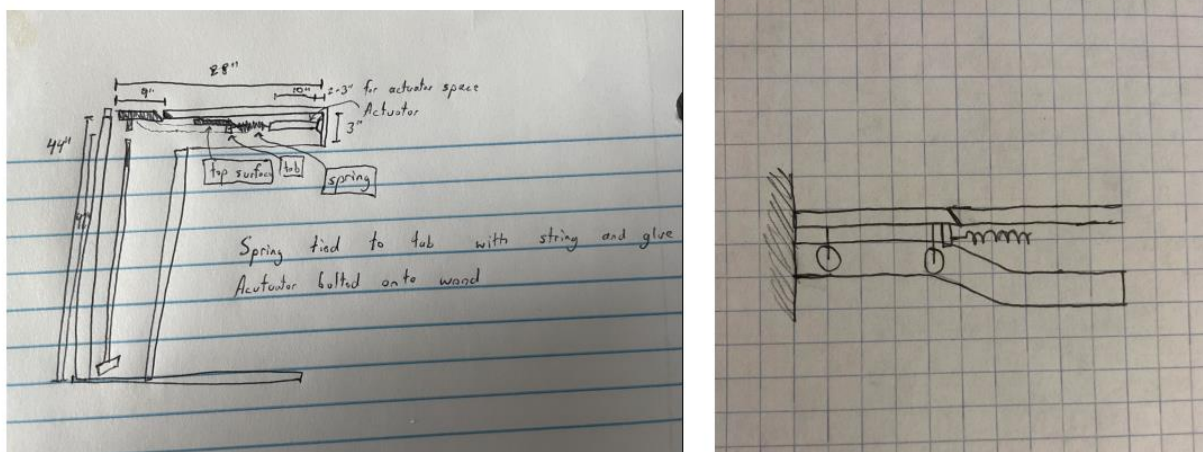 28"
9"
10"
2-3" for actuator space
Actuator
3"
44"
top surface
tab
spring
Spring tied to tab with string and glue
Acutuator bolted onto wood